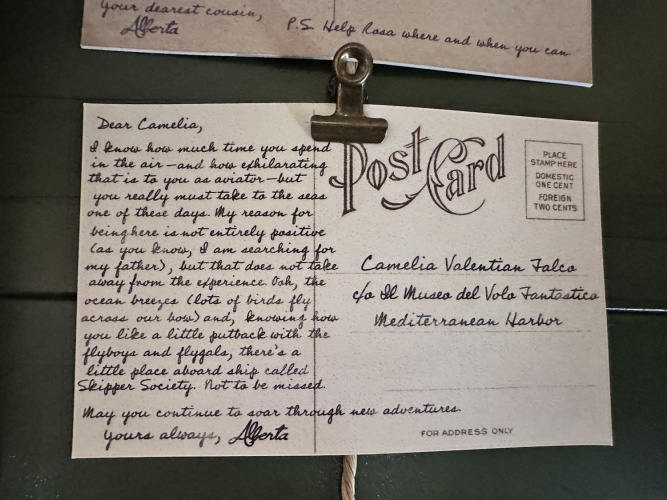 Your dearest cousin,
Alberta
P.S. Help Rosa where and when you can
Dear Camelia,
I know how much time you spend
in the air—and how exhilarating
that is to you as aviator—but
you really must take to the seas
one of these days. My reason for
being here is not entirely positive
(as you know, I am searching for
my father), but that does not take
away from the experience. Ooh, the
ocean breezes (lots of birds fly
across our bow) and, knowing how
you like a little putback with the
flyboys and flygals, there's a
little place aboard ship called
Skipper Society. Not to be missed.
May you continue to soar through new adventures.
Yours always, Alberta
Post Card
PLACE
STAMP HERE
DOMESTIC
ONE CENT
FOREIGN
TWO CENTS
Camelia Valentian Falco
c/o Il Museo del Volo Fantastico
Mediterranean Harbor
FOR ADDRESS ONLY